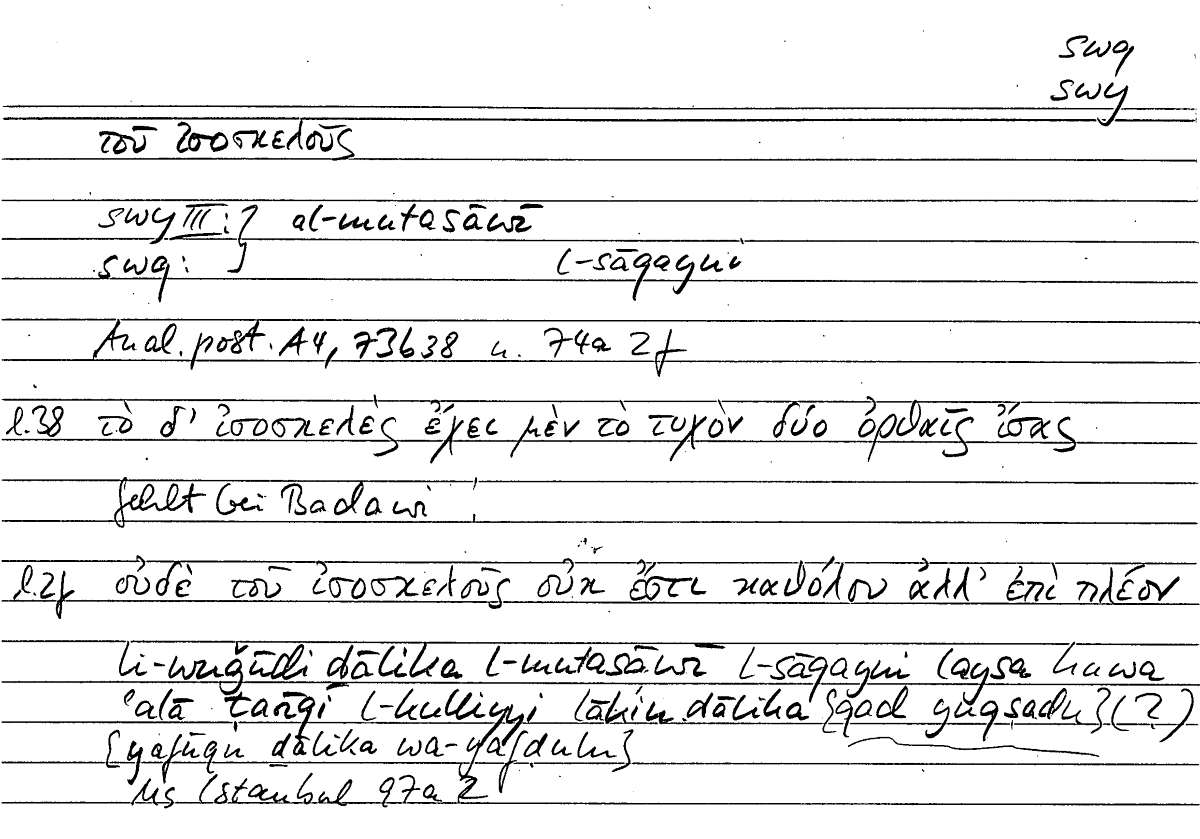 swq
swy
τοῦ ἰσοσκελοῦς
swy III: } al-mutasāwī
swq: } l-sāqayni
Anal. post. A4, 73b38 u. 74a 2f
l.38 τὸ δ' ἰσοσκελὲς ἔχει μὲν τὸ τυχὸν δύο ὀρθαῖς ἴσας
fehlt bei Badawi !
l.2f οὐδὲ τοῦ ἰσοσκελοῦς οὐκ ἔστι καθόλου ἀλλ' ἐπὶ πλέον
li-wuǧūdi ḏālika l-mutasāwī l-sāqayni laysa huwa
ʿalā ṭarīqi l-kulliyyi lākin ḏālika {qad yuqṣadu}(?)
{yafūqu ḏālika wa-yafḍulu}
Ms Istanbul 97a 2